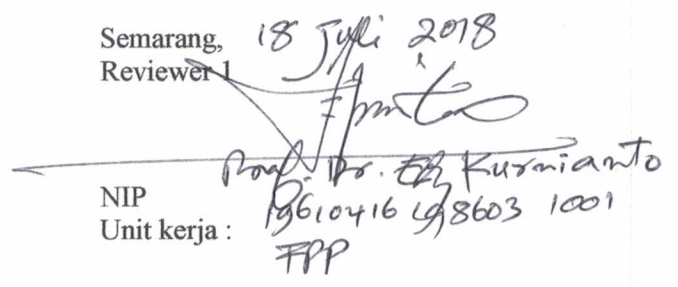 Semarang, 18 Juli 2018
Reviewer 1
Prof. Dr. Edy Kurnianto
NIP 19610416 198603 1001
Unit kerja : FPP